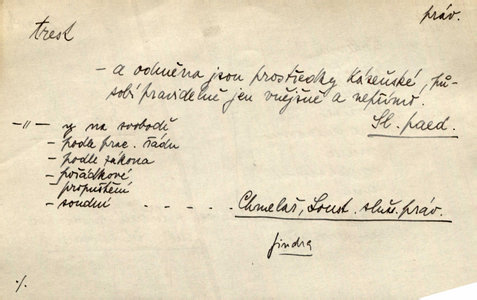 práv.
trest
- a odměna jsou prostředky kázeňské, pů-
sobí pravidelně jen vnějšně a nepřímo.
Sl. paed.
-"- y na svobodě
- podle prac. řádu
- podle zákona
- pořádkové
propuštění
- soudní - - - - - Chmelař, Soust. služ. práv.
Jindra
./.